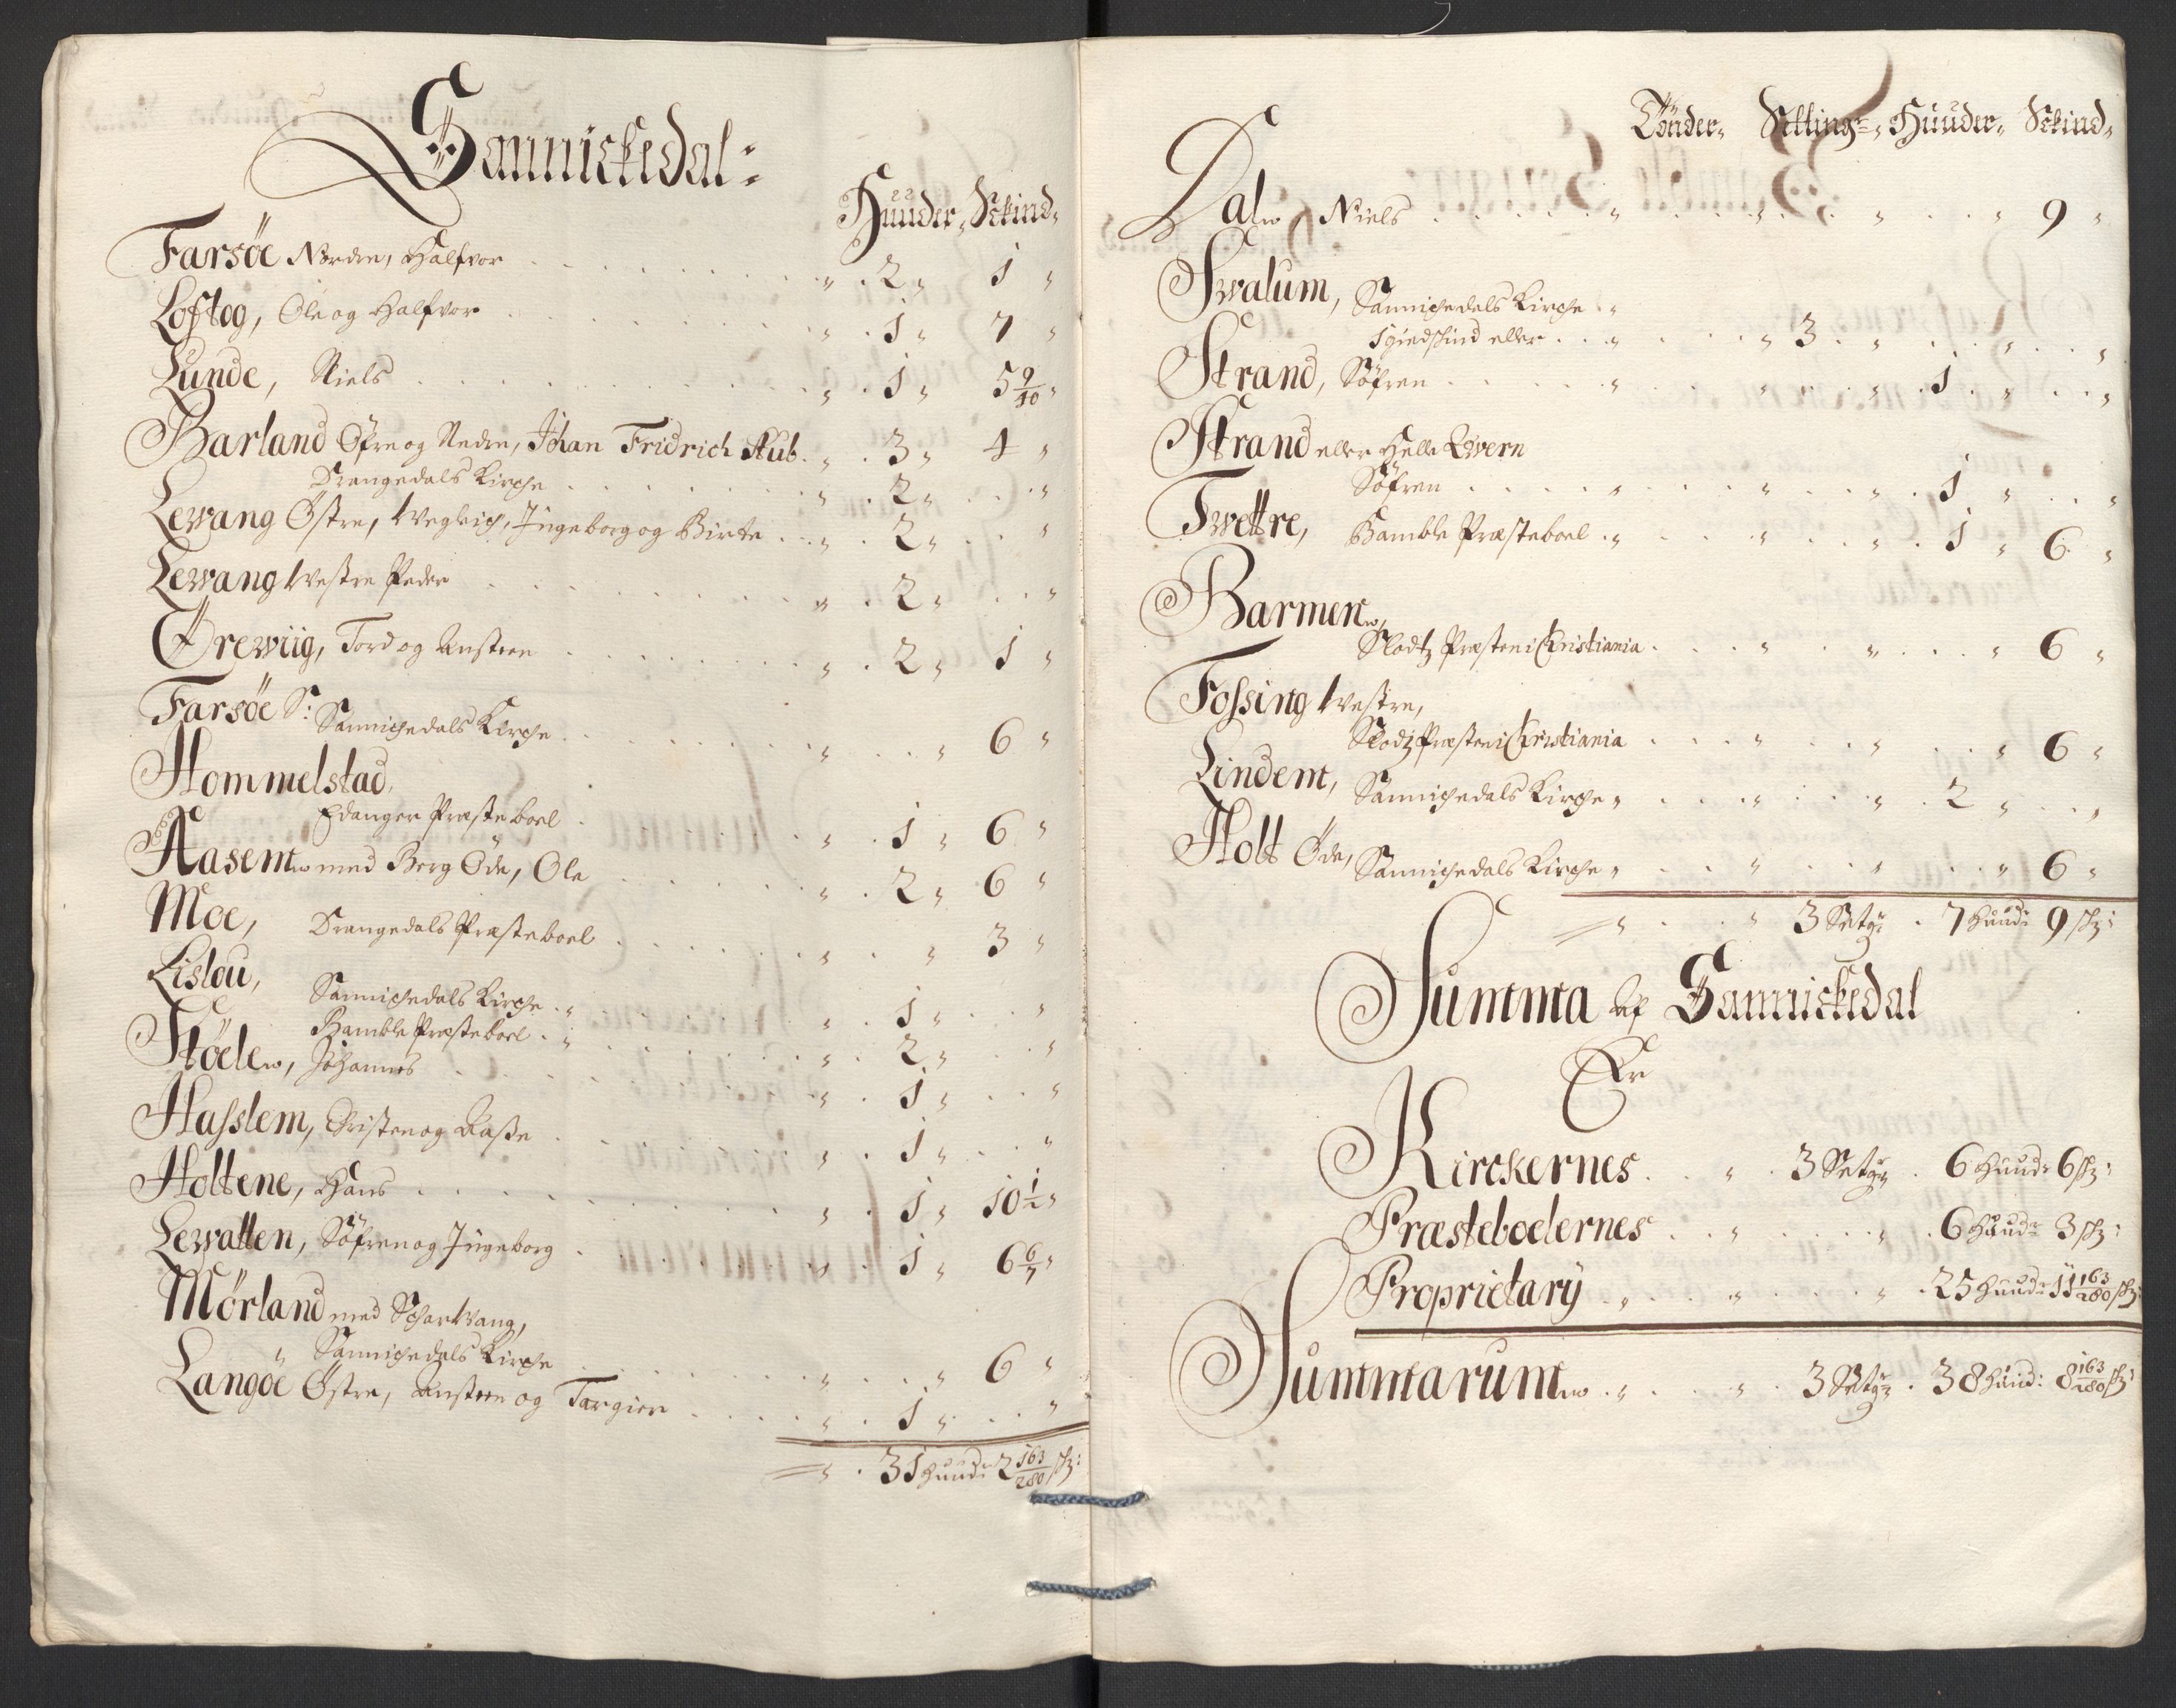 Sannickedal
Huuder, Skind,
Farsöe Nordre, Halfvor „ 2 „ 1 „
Loftog, Ole og Halfvor „ 1 „ 7 „
Lunde, Niels „ 1 „ 5 9/10 „
Barland Öfre og Nedre, Johan Fridrich Stub „ 3 „ 4 „
Drangedals Kirche „ 2 „ „
Lewang Östre, Ingeborg og Birte „ 2 „ „
Lewang Westre Peder „ 2 „ „
Örewiig, Tord og Ansteen „ 2 „ 1 „
Farsöe S: Sannichedals Kirche „ „ 6 „
Hommelstad,
Edanger Præsteboel „ 1 „ 6 „
Aasem med Berg Öde, Ole „ 2 „ 6 „
Moe, Drangedals Præsteboel „ „ 3 „
Lislou, Sannichedals Kirche „ „ 1 „ „
Bamble Præsteboel „ „ 2 „ „
Stöele, Johannes „ 1 „ „
Hasslem, Christen og Aasse „ 1 „ „
Holtene, Hans „ 1 „ 10 1/2 „
Lewatten, Söfren og Ingeborg „ 1 „ 6 6/7 „
Mörland med Scharwang,
Sannichedals Kirche „ „ 6 „
Langöe Östre, Ansteen og Targier „ 1 „ „
„ 31 huud: 2 163/280 sk:
Tönder, Setting:, Huuder, Skind,
Dal, Niels „ „ „ „ 9 „
Swalum, Sannichedals Kirche „
1 giedskind eller „ „ 3 „ „ „
Strand, Söfren „ „ „ 1 „ „
Strand eller Helle Qwern
Söfren „ „ „ 1 „ „
Twettre, Bamble Præsteboel „ „ „ 1 „ 6 „
Barmen,
Slodtz Præsten i Christiania „ „ „ 6 „
Fossing Westre,
Slodtz Præsten i Christiania „ „ „ 6 „
Lindem, Sannichedals Kirche „ „ „ 2 „ „
Holt Öde, Sannichedals Kirche „ „ „ „ 6 „
„ „ 3 Setg: 7 huud: 9 sk:
Summa af Sannickedal
Er
Kirckernes „ 3 Setg: 6 huud: 6 sk:
Præsteboelernes „ „ 6 huud: 3 sk:
Proprietarÿ „ „ „ 25 huud: 11 163/280 sk:
Summarum „ „ 3 Setg: 38 huud: 8 163/280 sk: